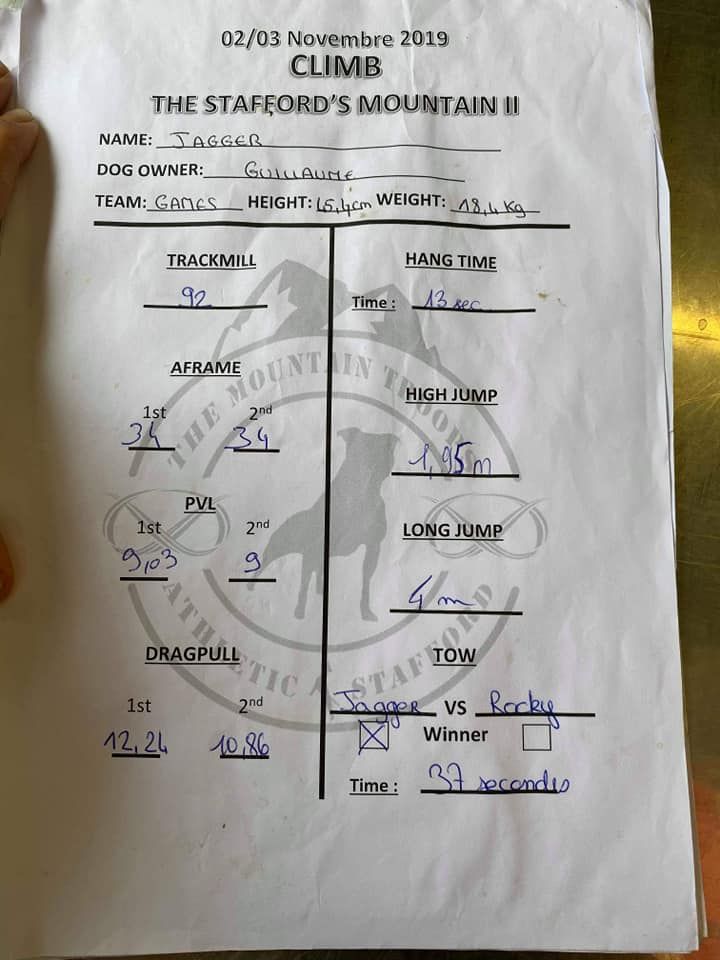 02/03 Novembre 2019
CLIMB
THE STAFFORD'S MOUNTAIN II
NAME: JAGGER
DOG OWNER: GUILLAUME
TEAM: GAMES HEIGHT: 45,4cm WEIGHT: 18,4 Kg
TRACKMILL
92
AFRAME
1st 2nd
34 34
PVL
1st 2nd
9,03 9
DRAGPULL
1st 2nd
12,24 10,86
HANG TIME
Time : 13 sec
HIGH JUMP
1,95m
LONG JUMP
4 m
TOW
Jagger VS Rocky
Winner
Time : 37 secondes
THE MOUNTAIN TROOPS
ATHLETIC STAFFORD